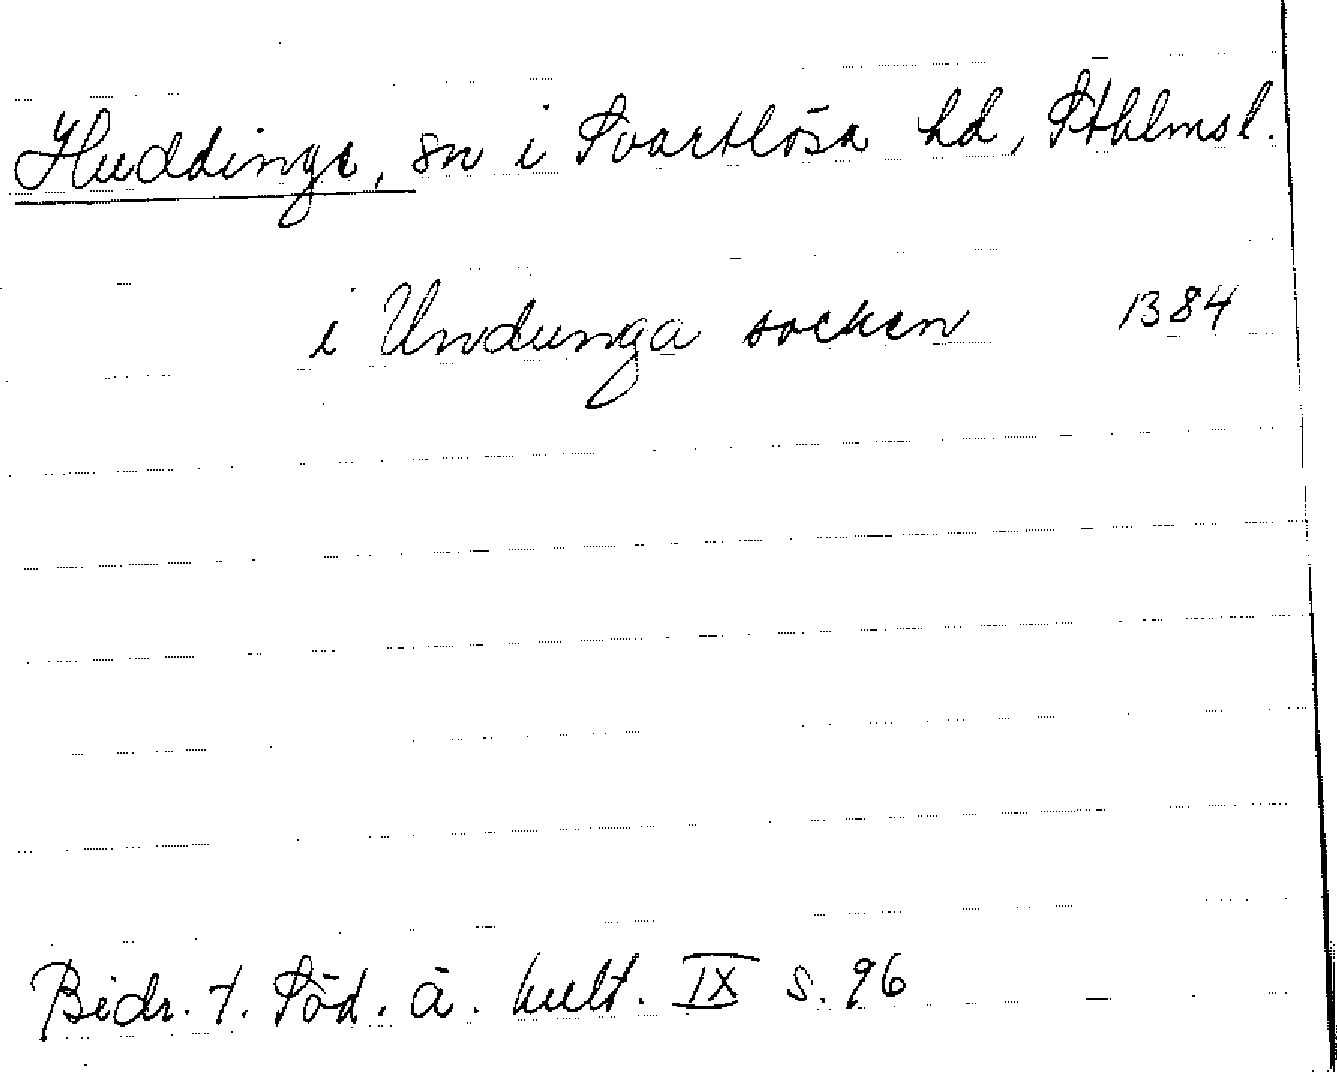 Huddinge, sn i Svartlösa hd, Sthlmsl.
i Undunga socken 1384
Bidr. t. Söd. ä. kult. IX s. 96